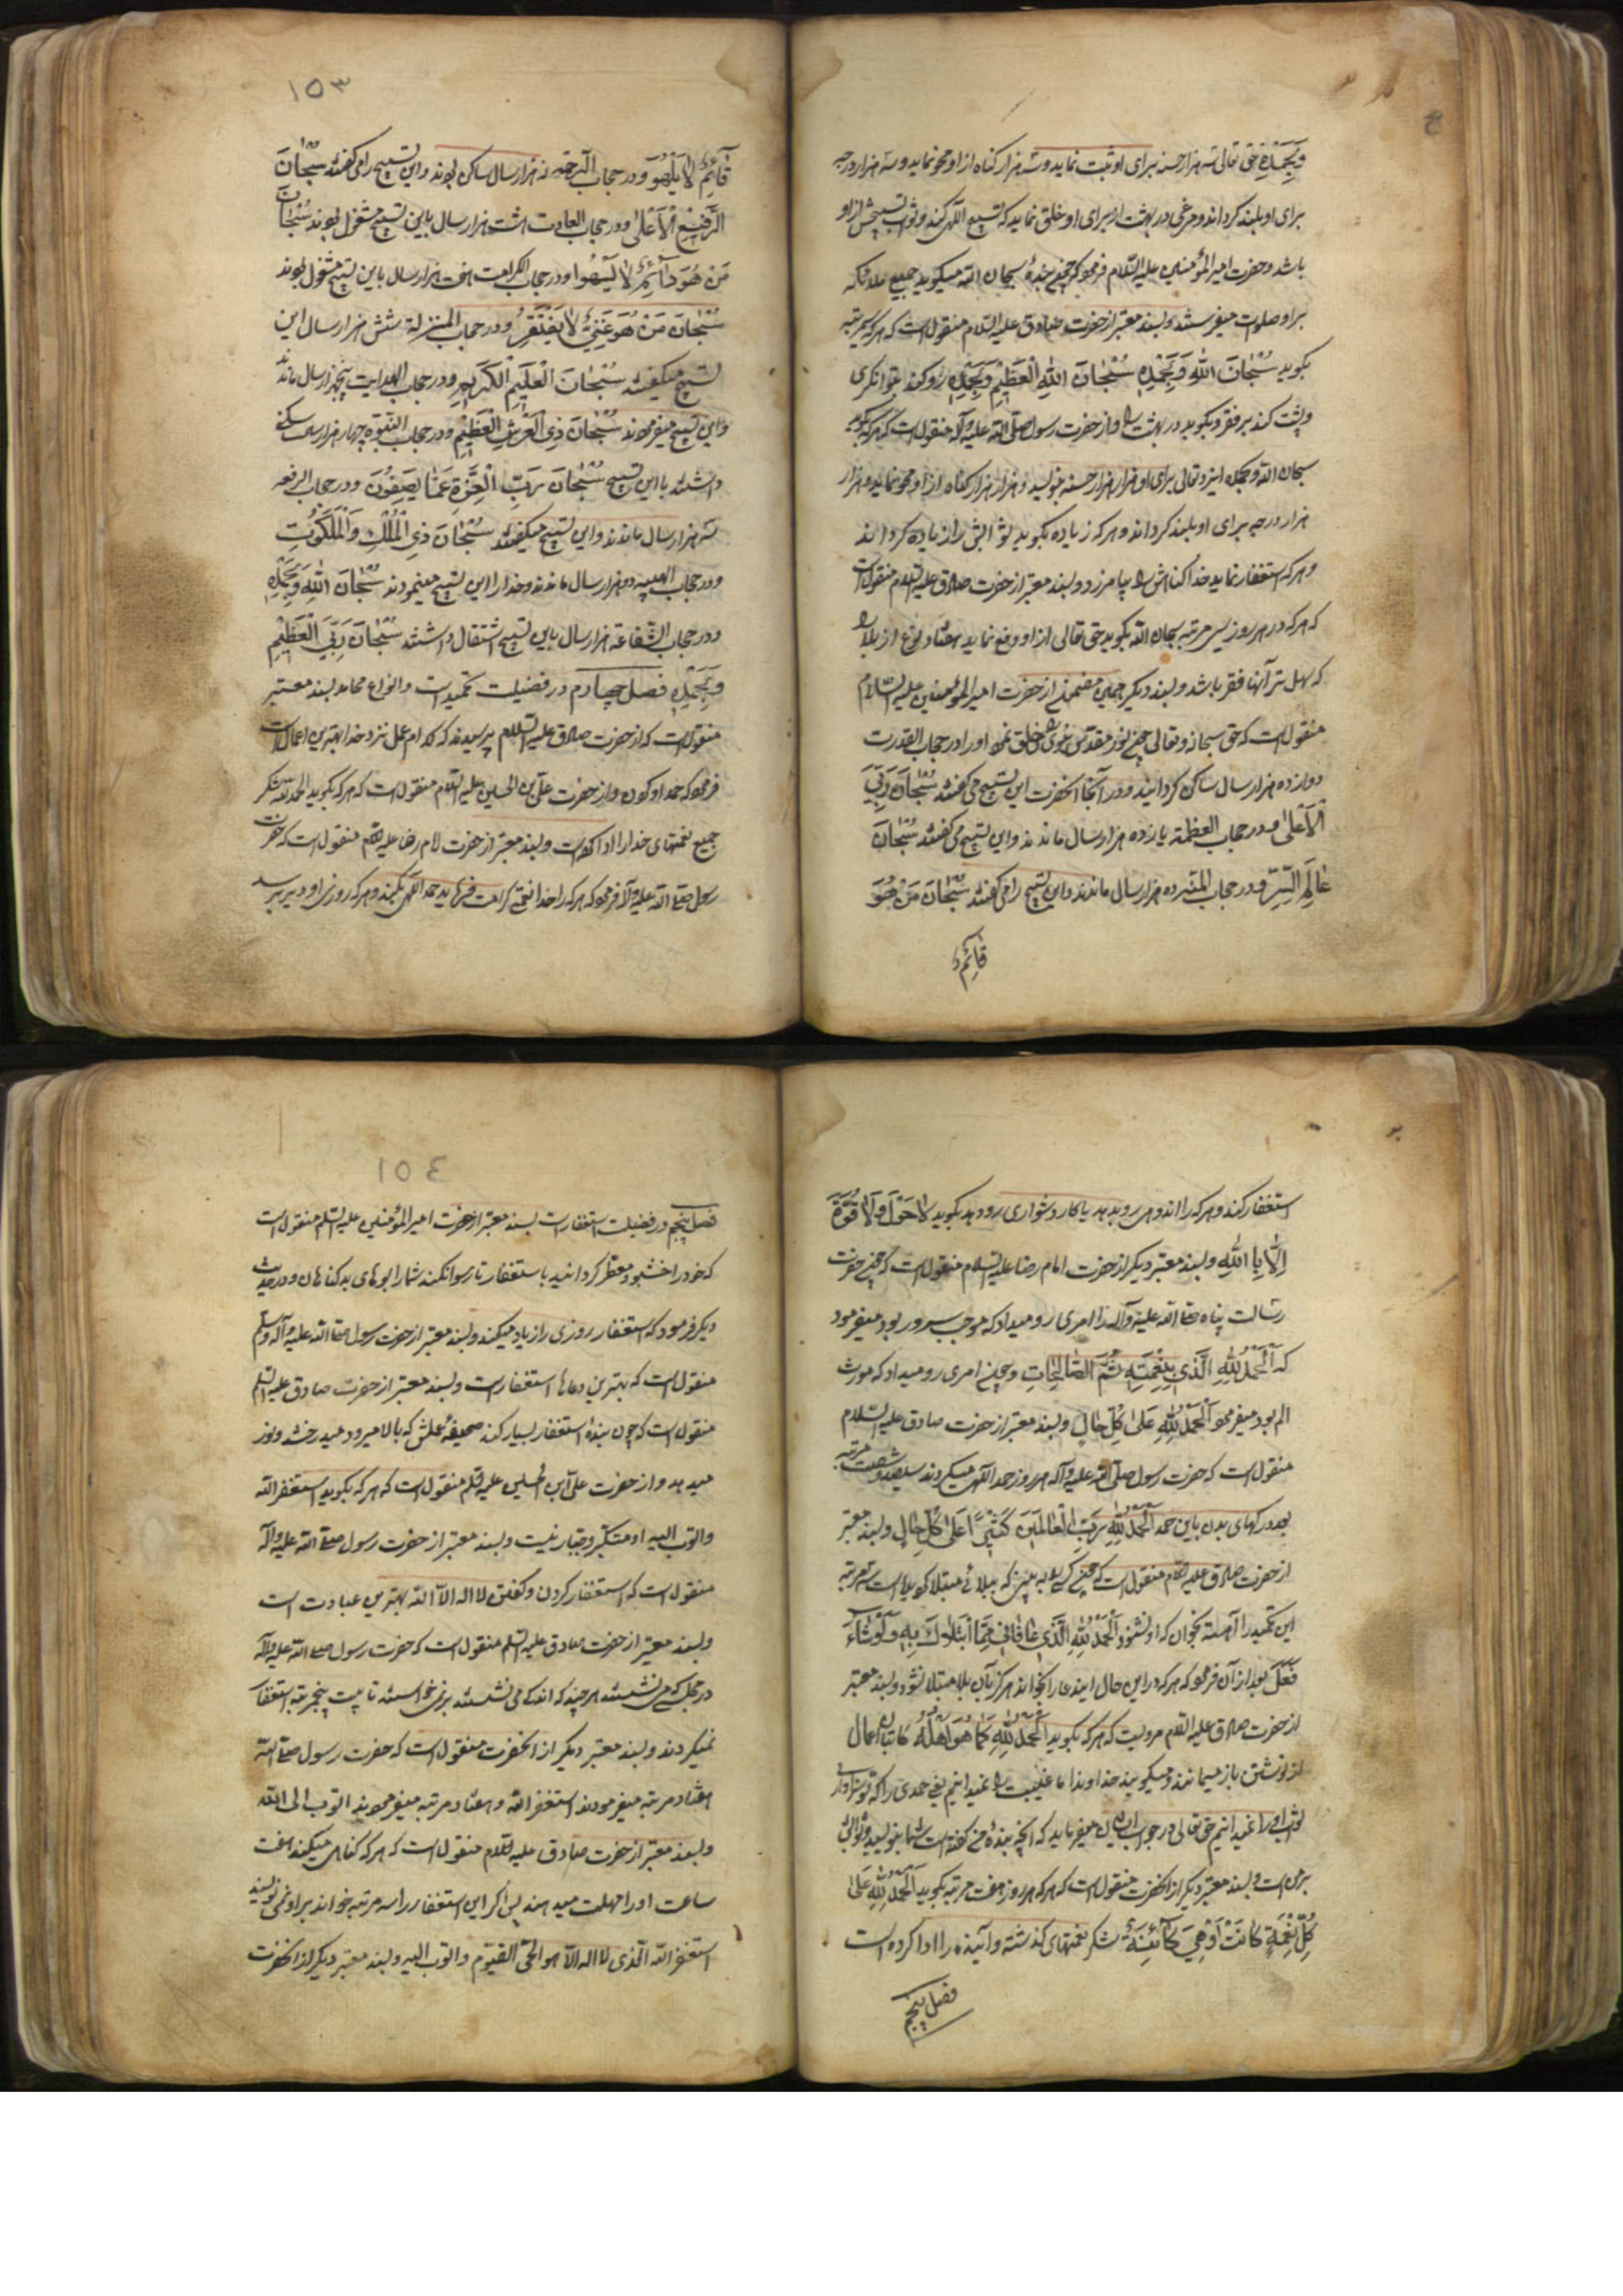 وَبِحَمْدِهِ حق تعالی سه هزار حسنه برای او ثبت نماید و سه هزار کناه از او محو نماید و سه هزار درجه
برای او بلند کرداند و مرغی در بهشت از برای او خلق نماید که تسبیح الهی کند و ثواب تسبیحش از او
باشد و حضرت امیر المؤمنین علیه السّلام فرمود که چون بنده سبحان الله میکوید جمیع ملائکه
بر او صلوات میفرستند و بسند معتبر از حضرت صادق علیه السّلام منقول است که هر که سی مرتبه
بکوید سُبْحٰانَ اللّٰهِ وَبِحَمْدِهِ سُبْحٰانَ اللّٰهِ الْعَظِيْمِ وَبِحَمْدِهِ رو کند بتوانکری
و پشت کند بر فقر و بکوبد در بهشت را و از حضرت رسول صلّی الله علیه وآله منقول است که هر که بکوید
سبحان الله وبحمده ایزد تعالی برای او هزار هزار حسنه بنویسد و هزار هزار کناه از او محو نماید و هزار
هزار درجه برای او بلند کرداند و هر که زیاده بکوید ثوابش را زیاده کرداند
و هر که استغفار نماید خدا کناهش را بیامرزد و بسند معتبر از حضرت صادق علیه السلام منقول است
که هر که در هر روز سی مرتبه سبحان الله بکوید حق تعالی از او دفع نماید هفتاد نوع از بلا را
که سهل تر آنها فقر باشد و بسند دیکر از حضرت امیر المؤمنین علیه السّلام
منقول است که حق سبحانه و تعالی چون نور مقدّس نبوی را خلق نمود او را در حجاب القدرت
دوازده هزار سال ساکن کردانید و در آنجا آنحضرت این تسبیح می کفتند سُبْحٰانَ رَبِّيَ
الْاَعْلٰی و در حجاب العظمة یازده هزار سال ماندند و این تسبیح می کفتند سُبْحٰانَ
عٰالِمِ السِّرِّ و در حجاب المنّة ده هزار سال ماندند و این تسبیح را می کفتند سُبْحٰانَ مَنْ هُوَ
قٰائِمٌ
١٥٣
قٰآئِمٌ لاٰ يَلْهُوَ و در حجاب الرحمه نه هزار سال ساکن بودند و این تسبیح را می کفتند سُبْحٰانَ
الرَّفِيْعِ الْاَعْلٰی و در حجاب السعادت هشت هزار سال باین تسبیح مشغول بودند سُبْحٰانَ
مَنْ هُوَ دٰآئِمٌ لاٰ يَسْهُوا و در حجاب الکرامت هفت هزار سال باین تسبیح مشغول بودند
سُبْحٰانَ مَنْ هُوَ غَنِيٌّ لاٰ يَفْتَقِرُ و در حجاب المنزلة شش هزار سال این
تسبیح میکفتند سُبْحٰانَ الْعَلِيْمِ الْكَرِيْمِ و در حجاب الهدایت پنجهزار سال ماندند
و این تسبیح میفرمودند سُبْحٰانَ ذِی الْعَرْشِ الْعَظِيْمِ و در حجاب النّبوّة چهار هزار سال سکنی
داشتند با این تسبیح سُبْحٰانَ رَبِّ الْعِزَّةِ عَمّٰا يَصِفُونَ و در حجاب الرفعه
سه هزار سال ماندند و این تسبیح میکفتند سُبْحٰانَ ذِی الْمُلْكِ وَالْمَلَكُوتِ
و در حجاب الهیبه دو هزار سال ماندند و خدا را این تسبیح مینمودند سُبْحٰانَ اللّٰهِ وَبِحَمْدِهِ
و در حجاب الشّفاعة هزار سال باین تسبیح اشتغال داشتند سُبْحٰانَ رَبِّيَ الْعَظِيْمِ
وَبِحَمْدِهِ فصل چهارم در فضیلت تحمید است و انواع محامد بسند معتبر
منقول است که از حضرت صادق علیه السّلام پرسیدند که کدام عمل نزد خدا بهترین اعمال است
فرمود که حمد او کردن و از حضرت علیّ بن الحسین علیه السلام منقول است که هر که بکوید الحمد لله شکر
جمیع نعمتهای خدا را ادا کرده است و بسند معتبر از حضرت امام رضا علیه السلام منقول است که حضرت
رسول صلّی الله علیه وآله فرمود که هر که را خدا نعمتی کرامت فرماید حمد الهی بکند و هر که روزی او دیر برسد
استغفار کند و هر که را اندوهی رو بدهد یا کار دشواری رو دهد بکوید لاٰ حَوْلَ وَلاٰ قُوَّةَ
اِلاّٰ بِا اللّٰهِ و بسند معتبر دیکر از حضرت امام رضا علیه السلام منقول است که چون حضرت
رسالت پناه صلّی الله علیه وآله را امری رو میداد که موجب سرور بود میفرمود
که اَلْحَمْدُ لِلّٰهِ الَّذِي بِنِعْمَتِهِ تَتُمُّ الصّٰالِحٰاتِ و چون امری رو میداد که مورث
الم بود میفرمود اَلْحَمْدُ لِلّٰهِ عَلٰی كُلِّ حٰالٍ و بسند معتبر از حضرت صادق علیه السّلام
منقول است که حضرت رسول صلّی الله علیه وآله هر روز حمد الهی میکردند سیصد و شصت مرتبه
بعدد رکهای بدن باین حمد اَلْحَمْدُ لِلّٰهِ رَبِّ الْعٰالَمِيْنَ كَثِيْرًا عَلٰی كُلِّ حٰالٍ و بسند معتبر
از حضرت صادق علیه السلام منقول است که چون کسی را به بینی که ببلائی مبتلا کردیده است سه مرتبه
این تحمید را آهسته بخوان که او نشنود اَلْحَمْدُ لِلّٰهِ الَّذِي عٰافٰانِي مِمَّا ابْتَلاٰكَ بِهِ وَلَوْ شٰاءَ
فَعَلَ بعد از آن فرمود که هر که در این حال این دعا را بخواند هرکز بآن بلا مبتلا نشود و بسند معتبر
از حضرت صادق علیه السلام مرویست که هر که بکوید اَلْحَمْدُ لِلّٰهِ كَمٰا هُوَ اَهْلُهُ کاتبان اعمال
از نوشتن باز میمانند و میکویند خداوندا ما غیبت را نمیدانیم یعنی حمدی را که تو سزاواری
ثواب او را نمیدانیم حق تعالی در جواب ایشان میفرماید که آنچه بنده من کفته است شما بنویسید و ثوابش
بر من است و بسند معتبر دیکر از آنحضرت منقول است که هر که هر روز هفت مرتبه بکوید اَلْحَمْدُ لِلّٰهِ عَلٰی
كُلِّ نِعْمَةٍ كٰانَتْ اَوْ هِيَ كٰآئِنَةٌ شکر نعمتهای کذشته و آینده را ادا کرده است
فصل پنجم
١٥٤
فصل پنجم در فضیلت استغفار است بسند معتبر از حضرت امیر المؤمنین علیه السّلم منقول است
که خود را خشبو و معطّر کردانید باستغفار تا رسوا نکند شما را بوهای بد کناهان و در حدیث
دیکر فرمود که استغفار روزی را زیاد میکند و بسند معتبر از حضرت رسول صلّی الله علیه وآله وسلّم
منقول است که بهترین دعاها استغفار است و بسند معتبر از حضرت صادق علیه السّلم
منقول است که چون بنده استغفار بسیار کند صحیفهٔ عملش که بالا میرود میدرخشد و نور
میدهد و از حضرت علیّ ابن الحسین علیه السلم منقول است که هر که بکوید استغفر الله
واتوب الیه او متکبّر و جبّار نیست و بسند معتبر از حضرت رسول صلّی الله علیه وآله
منقول است که استغفار کردن و کفتن لا اله الاّ الله بهترین عبادت است
و بسند معتبر از حضرت صادق علیه السّلم منقول است که حضرت رسول صلی الله علیه وآله
در مجلسی که می نشستند هر چند که اندکی می نشستند بر نمی خواستند تا بیست پنج مرتبه استغفار
نمیکردند و بسند معتبر دیکر از آنحضرت منقول است که حضرت رسول صلّی الله
هفتاد مرتبه میفرمودند استغفر الله و هفتاد مرتبه میفرمودند اتوب الی الله
و بسند معتبر از حضرت صادق علیه السلام منقول است که هر که کناهی میکند هفت
ساعت او را مهلت میدهند پس اکر این استغفار را سه مرتبه خواند بر او نمی نویسند
استغفر الله الّذی لا اله الاّ هو الحیّ القیّوم واتوب الیه و بسند معتبر دیکر از آنحضرت